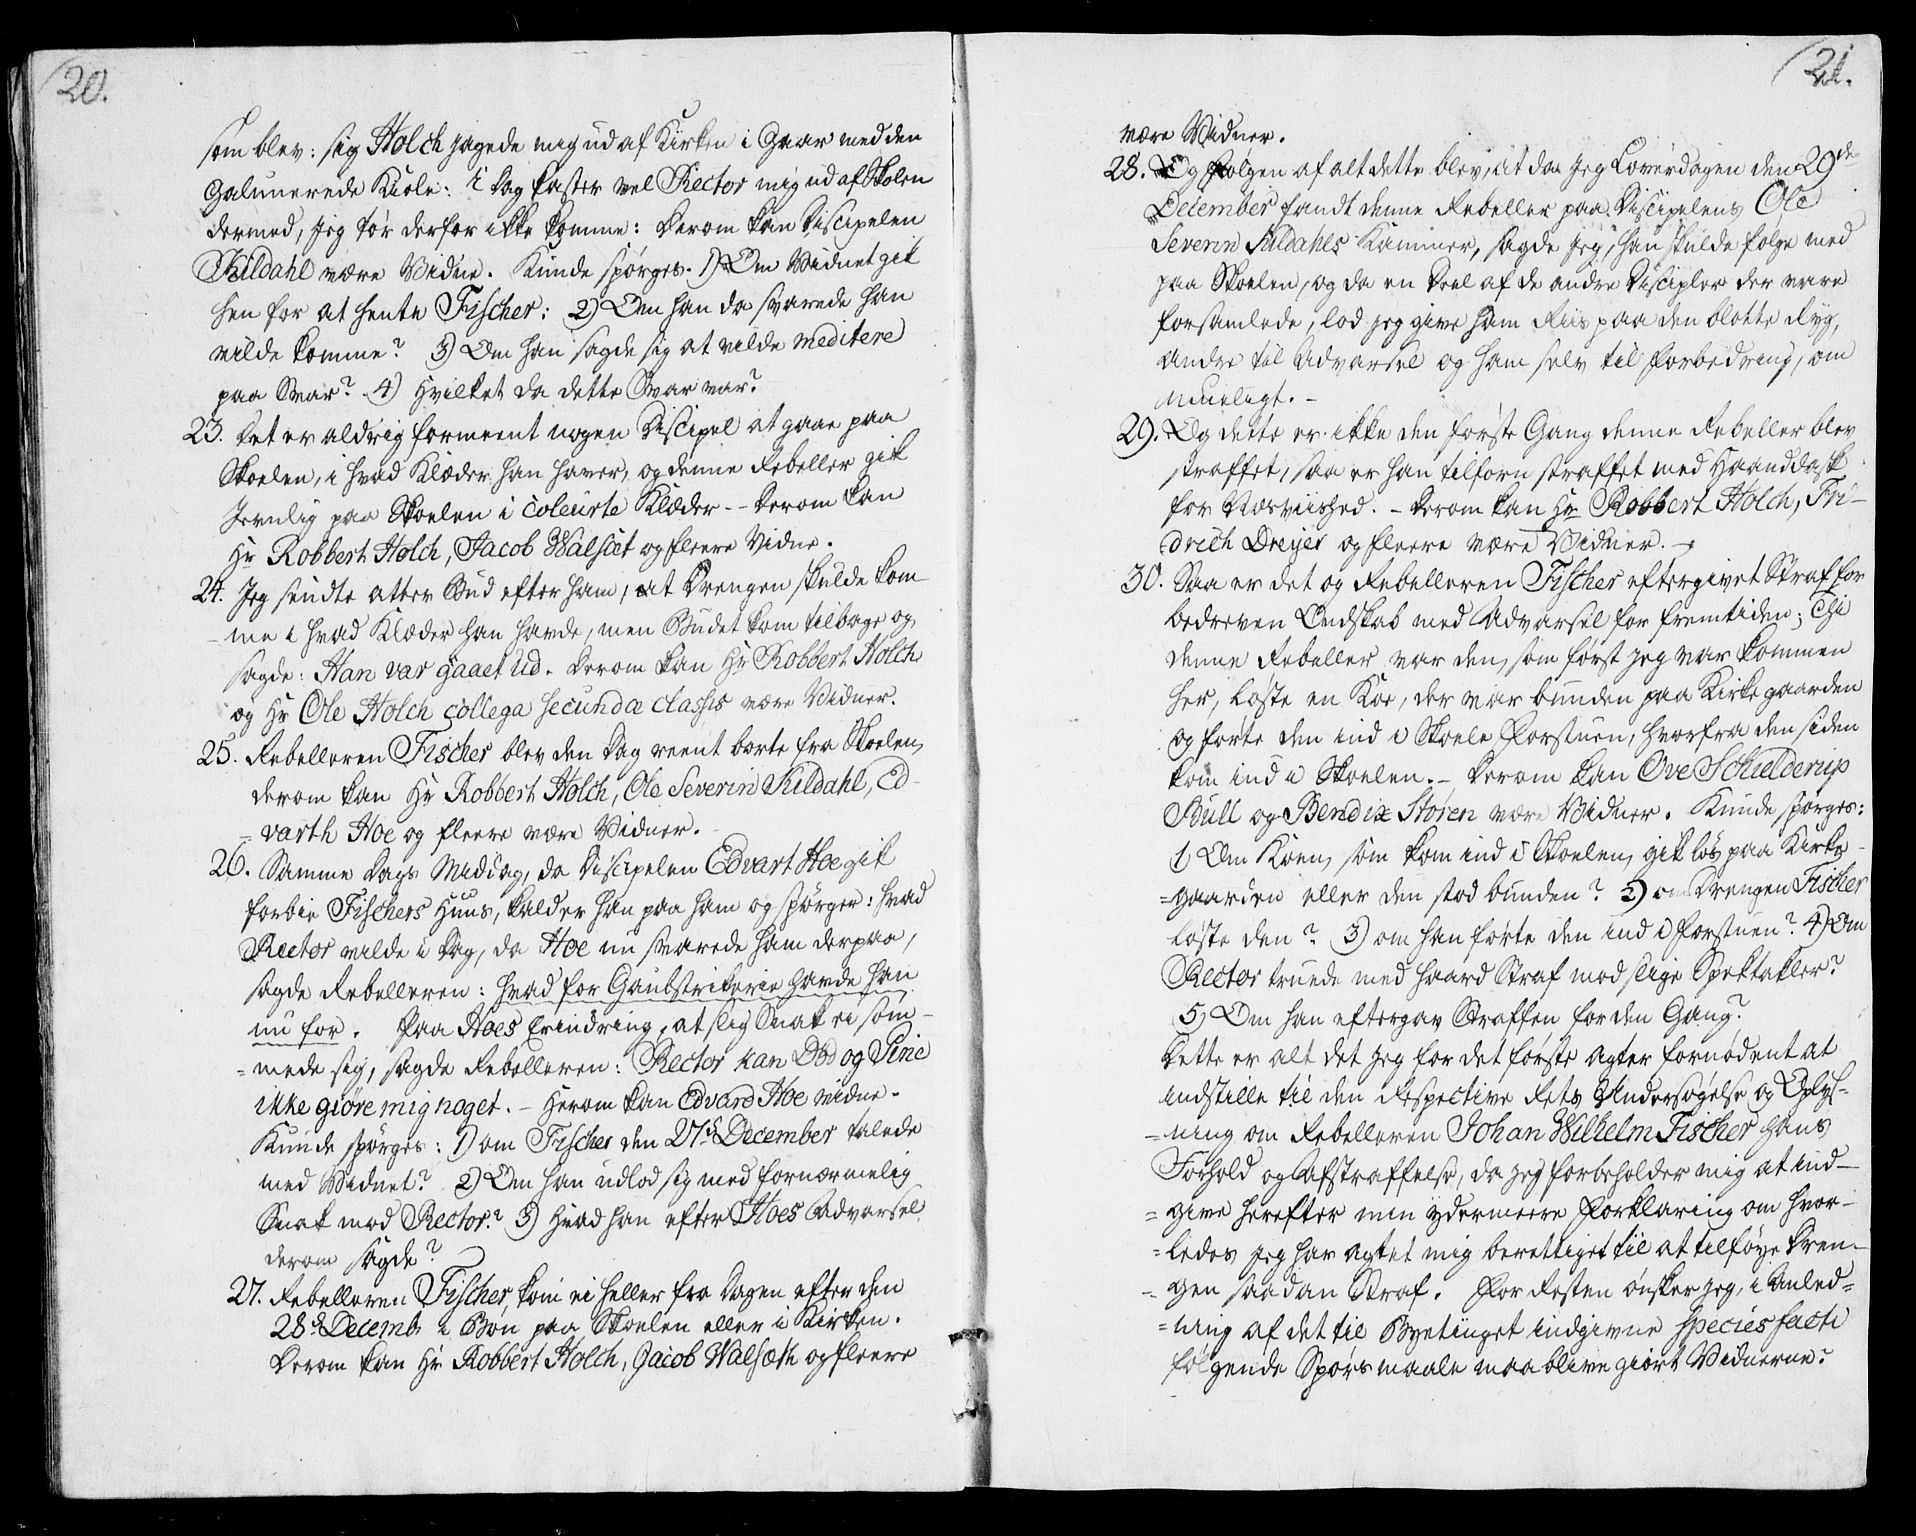 20.
som blev: sig Holch jagede mig ud af Kirken i Gaar med den
Galunerede Kiole: i Dag kaster vel Rector mig ud af Skolen
dermed, jeg tør derfor ikke komme: Derom kan Discipelen
Kildahl være Vidne. Kunde spørges. 1) Om Vidnet gik
hen for at hente Fischer: 2) Om han da svarede han
vilde komme? 3) Om han sagde sig at vilde meditere
paa Svar? 4) Hvilket da dette Svar var?
23. Det er aldrig formeent nogen Discipel at gaae paa
Skoelen, i hvad Klæder han haver, og denne Rebeller gik
Jevnlig paa Skoelen i couleurte Klæder - - Derom kan
Hr Robbert Holch, Jacob Walsæt og fleere Vidne.
24. Jeg sendte atter Bud efter ham, at Drengen skulde kom-
me i hvad Klæder han havde, men Budet kom tilbage og
sagde: Han var gaaet ud. Derom kan Hr Robbert Holch
og Hr Ole Holch collega secundæ classis være Vidner.
25. Rebelleren Fischer blev den Dag reent borte fra Skoelen,
derom kan Hr Robbert Holch, Ole Severin Kildahl, Ed-
=varth Hoe og fleere være Vidner.
26. Samme Dags Middag, da Discipelen Edvart Hoe gik
forbie Fischers Huus, kalder han paa ham og spørger: hvad
Rector vilde i Dag, da Hoe nu svarede ham derpaa,
sagde Rebelleren: hvad for Gaubstrikerie havde han
nu for. Paa Hoes Erindring, at slig Snak ei søm-
=mede sig, sagde Rebelleren: Rector kan Død og Pine
ikke giøre mig noget. - Herom kan Edvard Hoe vidne.
Kunde spørges: 1) om Fischer den 27de December talede
med Vidnet? 2) Om han udlod sig med fornærmelig
Snak mod Rector? 3) Hvad han efter Hoes Advarsel
derom sagde?
27. Rebelleren Fischer, kom ei heller fra Dagen efter den
28de Decemb i Bøn paa Skoelen eller i Kirken.
Derom kan Hr Robbert Holch, Jacob Walsæth og fleere
21.
være Vidner.
28. Og Følgen af alt dette blev, at da jeg Løverdagen den 29de
December fandt denne Rebeller paa Discipelens Ole
Severin Kildahls Kammer, sagde jeg, han skulde følge med
paa Skoelen, og da en Deel af de andre Discipler der vare
forsamlede, lod jeg give ham Riis paa den blotte Ryg,
andre til Advarsel og ham selv til Forbedring, om
mueligt. -
29. Og dette er ikke den første Gang denne Rebeller blev
straffet, saa er han tilforn straffet med Haanddask
for Næsviished. - Derom kan Hr Robbert Holch, Fri-
drich Dreyer og fleere være Vidner. -
30. Saa er det og Rebelleren Fischer eftergivet Straf for
bedreven Ondskab med Advarsel for fremtiden; Thi
denne Rebeller var den, som først jeg var kommen
her, løste en Koe, der var bunden paa Kirkegaarden
og førte den ind i Skoele Forstuen, hvorfra den siden
kom ind i Skoelen. - Derom kan Ove Schielderup
Bull og Bendix Støren være Vidner. Kunde spørges:
1) Om Koen, som kom ind i Skoelen, gik løs paa Kirke-
=gaarden eller den stod bunden? 2) om Drengen Fischer
løste den? 3) om han førte den ind i Forstuen? 4) Om
Rector truede med haard Straf mod slige Spektakler?
5) Om han eftergav Straffen for den Gang?
Dette er alt det jeg for det første agter fornødent at
indstille til den Respective Rets Undersøgelse og Oplys-
=ning om Rebelleren Johan Wilhelm Fischer hans
Forhold og Afstraffelse, da jeg forbeholder mig at ind-
=give herefter min ydermeere Forklaring om hvor-
=ledes jeg har agtet mig berettiget til at tilføye Dren-
=gen saadan Straf. For Resten ønsker jeg, i Anled-
=ning af det til Byetinget indgivne species facti
følgende Spørsmaale maa blive giort Vidnerne: